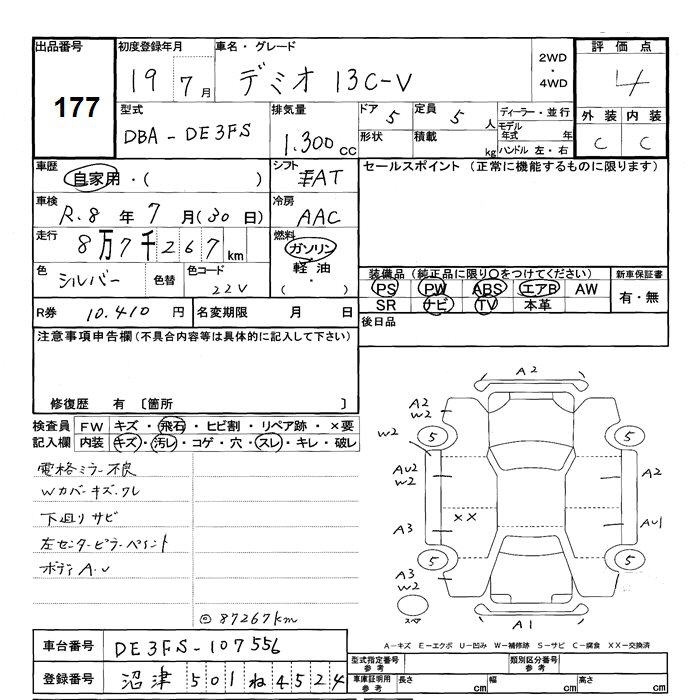 出品番号 初度登録年月 車名・グレード 2WD・4WD 評価点
177 19 7月 デミオ 13C-V 4
型式 排気量 ドア 5 定員 5人 ディーラー・並行 外装 内装
DBA-DE3FS 1.300cc 形状 積載 kg モデル年式 年 ハンドル 左・右 C C
車歴 自家用・( ) シフト FAT セールスポイント (正常に機能するものに限ります)
車検 R.8年7月(30日) 冷房 AAC
走行 8万7千267km 燃料 ガソリン 軽油 (・)
色 シルバー 色替 色コード 22V
装備品 (純正品に限り○をつけてください) 新車保証書
PS PW ABS エアB AW 有・無
SR ナビ TV 本革
R券 10.410円 名変期限 月 日 後日品
注意事項申告欄(不具合内容等は具体的に記入して下さい)
修復歴 有 〔箇所 〕
検査員記入欄 FW キズ・飛石・ヒビ割・リペア跡・×要
内装 キズ・汚レ・コゲ・穴・スレ・キレ・破レ
電格ミラー不良
Wカバーキズ.ワレ
下廻りサビ
左センターピラーペイント
ボディA.U
◎87267km
A2
A2
W2
5
5
W2
AU2
W2
A2
XX
A3
AU1
5
5
A3
W2
スペア
A1
A-キズ E-エクボ U-凹み W-補修跡 S-サビ C-腐食 XX-交換済
車台番号 DE3FS-107556
登録番号 沼津501ね4524
型式指定番号 参考 類別区分番号 参考
車庫証明用 参考 長さ cm 幅 cm 高さ cm